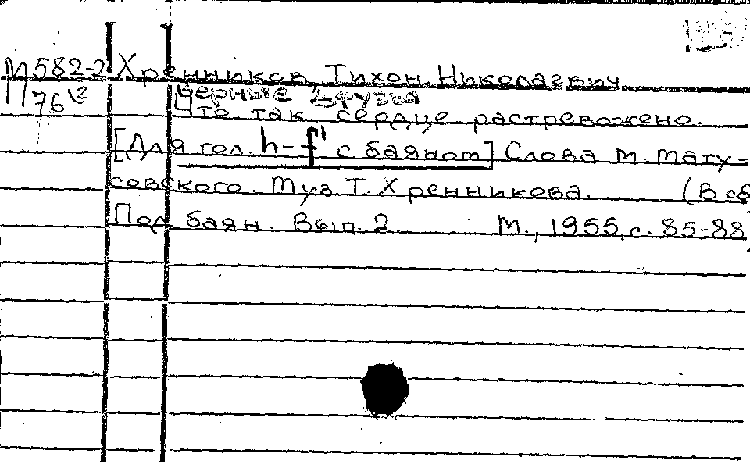 М582-2 Хренников, Тихон Николаевич
Верные друзья
П76
Что так сердце растревожено.
[Для гол. h-f' с баяном] Слова М. Мату-
совского. Муз. Т. Хренникова. (В сб
Под баян. Вып. 2 М., 1955, с. 85-88